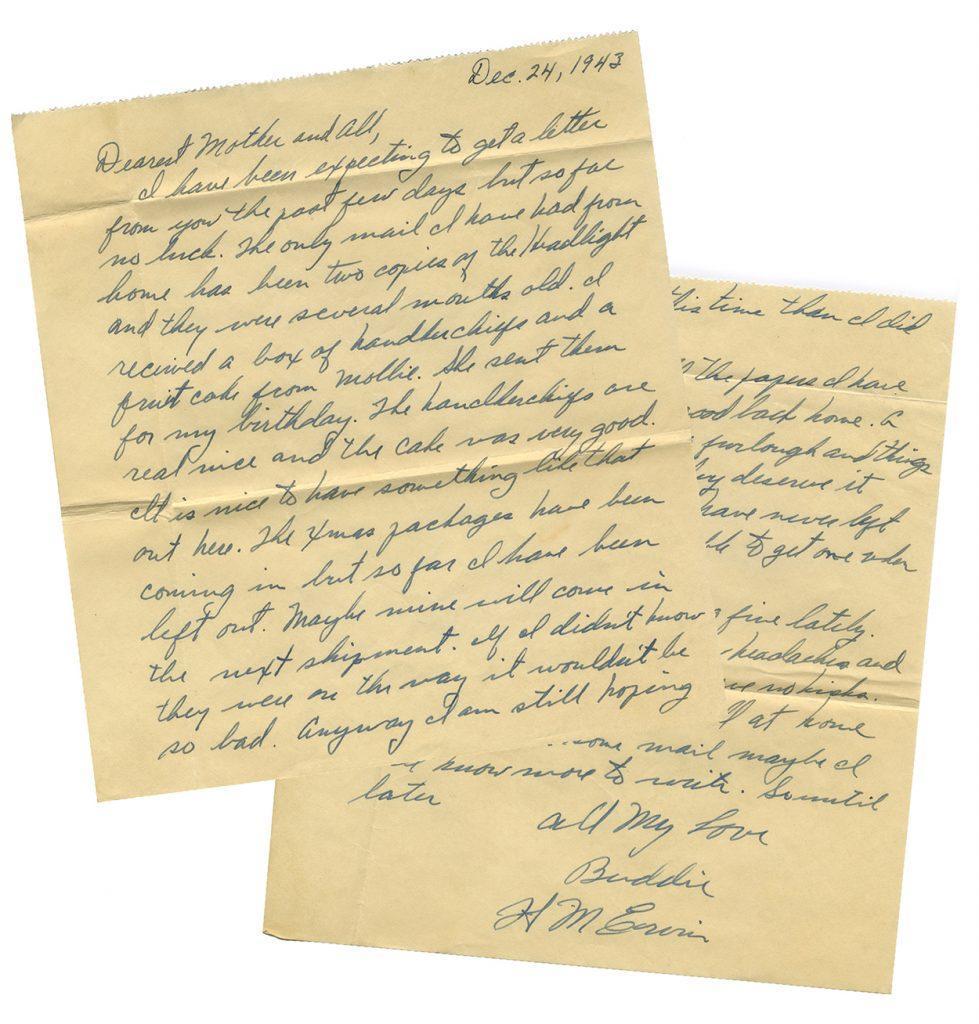 Dec. 24, 1943
Dearest Mother and all,
I have been expecting to get a letter
from you the past few days but so far
no luck. The only mail I have had from
home has been two copies of the Headlight
and they were several months old. I
recived a box of handkerchiefs and a
fruit cake from Mollie. She sent them
for my birthday. The handkerchiefs are
real nice and the cake was very good.
It is nice to have something like that
out here. The Xmas packages have been
coming in but so far I have been
left out. Maybe mine will come in
the next shipment. If I didn't know
they were on the way it wouldn't be
so bad. Anyway I am still hoping
this time than I did
the papers I have
good back home. A
furlough and things
deserve it
have never left
to get one when
fine lately.
headaches and
no kicks.
at home
some mail maybe I
know more to write. So until
later
All My Love
Buddie
H M Ervin